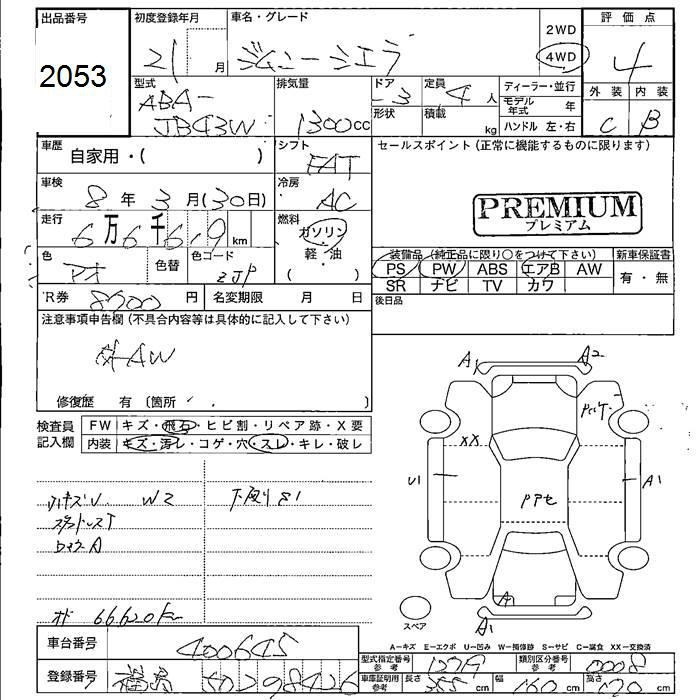 出品番号 初度登録年月 車名・グレード 2WD 評価点
2053 21 月 ジムニーシエラ 4WD 4
型式 排気量 ドア 定員 ディーラー・並行 外装 内装
ABA-JB43W 1300cc 3 4人 モデル年式 年 C B
形状 積載 kg ハンドル 左・右
車歴 自家用・( ) シフト FAT セールスポイント (正常に機能するものに限ります)
車検 8年 3月 (30日) 冷房 AC
PREMIUM
プレミアム
走行 6万 6千 619 km 燃料 ガソリン
軽・油
( )
色 アオ 色替 色コード ZJP
装備品 (純正品に限り○をつけて下さい) 新車保証書
PS PW ABS エアB AW 有・無
SR ナビ TV カワ
R券 円 名変期限 月 日 後日品
注意事項申告欄 (不具合内容等は具体的に記入して下さい)
AW
修復歴 有 〔箇所 〕
検査員記入欄 FW キズ・飛石・ヒビ割・リペア跡・X要
内装 キズ・汚レ・コゲ・穴・スレ・キレ・破レ
A1 A2
XX
U1 A1
W2
A
66,620km
A1
スペア
A-キズ E-エクボ U-凹み W-補修跡 S-サビ C-腐食 XX-交換済
車台番号 400645
型式指定番号 参考 類別区分番号 参考 0008
登録番号 福島
車庫証明用 参考 長さ 355cm 幅 160cm 高さ 170cm